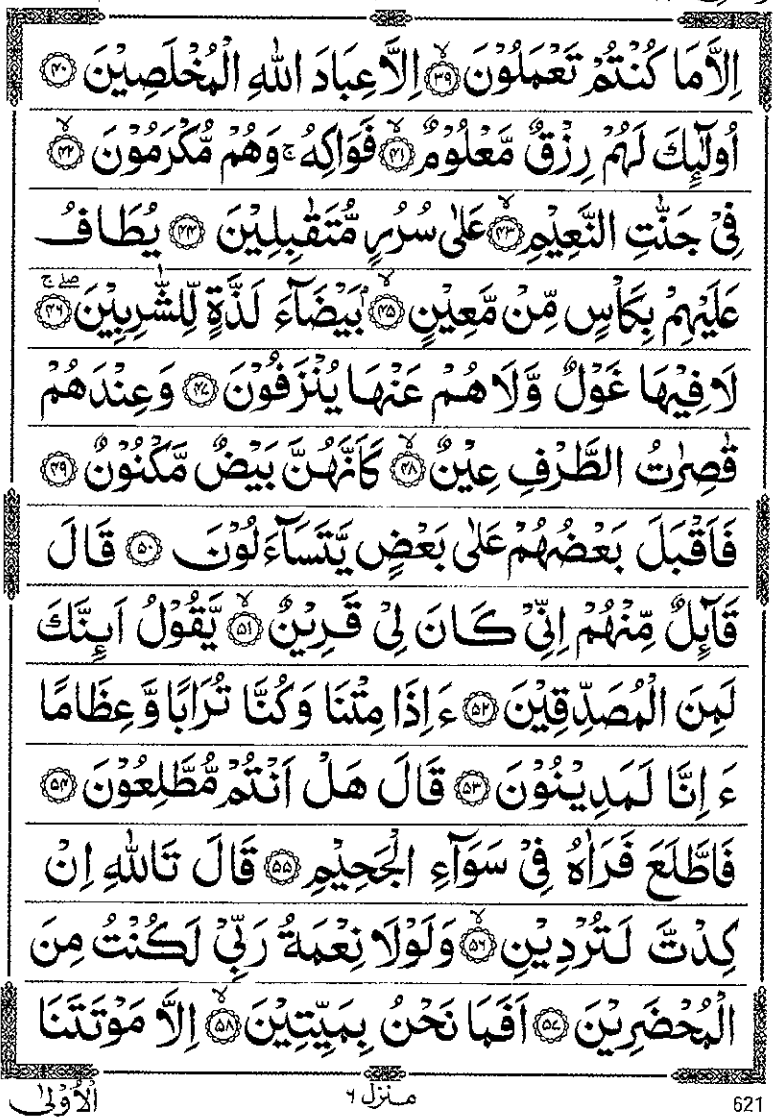 اِلَّا مَا كُنْتُمْ تَعْمَلُوْنَ ۙ﴿۳۹﴾ اِلَّا عِبَادَ اللّٰهِ الْمُخْلَصِيْنَ ﴿۴۰﴾
اُولٰٓئِكَ لَهُمْ رِزْقٌ مَّعْلُوْمٌ ۙ﴿۴۱﴾ فَوَاكِهُ ۚ وَهُمْ مُّكْرَمُوْنَ ۙ﴿۴۲﴾
فِيْ جَنّٰتِ النَّعِيْمِ ۙ﴿۴۳﴾ عَلٰى سُرُرٍ مُّتَقٰبِلِيْنَ ﴿۴۴﴾ يُطَافُ
عَلَيْهِمْ بِكَاْسٍ مِّنْ مَّعِيْنٍۭ ۙ﴿۴۵﴾ بَيْضَآءَ لَذَّةٍ لِّلشّٰرِبِيْنَ ۖۚ﴿۴۶﴾
لَا فِيْهَا غَوْلٌ وَّلَا هُمْ عَنْهَا يُنْزَفُوْنَ ﴿۴۷﴾ وَعِنْدَهُمْ
قٰصِرٰتُ الطَّرْفِ عِيْنٌ ۙ﴿۴۸﴾ كَاَنَّهُنَّ بَيْضٌ مَّكْنُوْنٌ ﴿۴۹﴾
فَاَقْبَلَ بَعْضُهُمْ عَلٰى بَعْضٍ يَّتَسَآءَلُوْنَ ﴿۵۰﴾ قَالَ
قَآئِلٌ مِّنْهُمْ اِنِّيْ كَانَ لِيْ قَرِيْنٌ ۙ﴿۵۱﴾ يَّقُوْلُ اَئِنَّكَ
لَمِنَ الْمُصَدِّقِيْنَ ﴿۵۲﴾ ءَاِذَا مِتْنَا وَكُنَّا تُرَابًا وَّعِظَامًا
ءَاِنَّا لَمَدِيْنُوْنَ ﴿۵۳﴾ قَالَ هَلْ اَنْتُمْ مُّطَّلِعُوْنَ ﴿۵۴﴾
فَاطَّلَعَ فَرَاٰهُ فِيْ سَوَآءِ الْجَحِيْمِ ﴿۵۵﴾ قَالَ تَاللّٰهِ اِنْ
كِدْتَّ لَتُرْدِيْنِ ۙ﴿۵۶﴾ وَلَوْلَا نِعْمَةُ رَبِّيْ لَكُنْتُ مِنَ
الْمُحْضَرِيْنَ ﴿۵۷﴾ اَفَمَا نَحْنُ بِمَيِّتِيْنَ ۙ﴿۵۸﴾ اِلَّا مَوْتَتَنَا
الْاُوْلٰى
منزل ۶
621